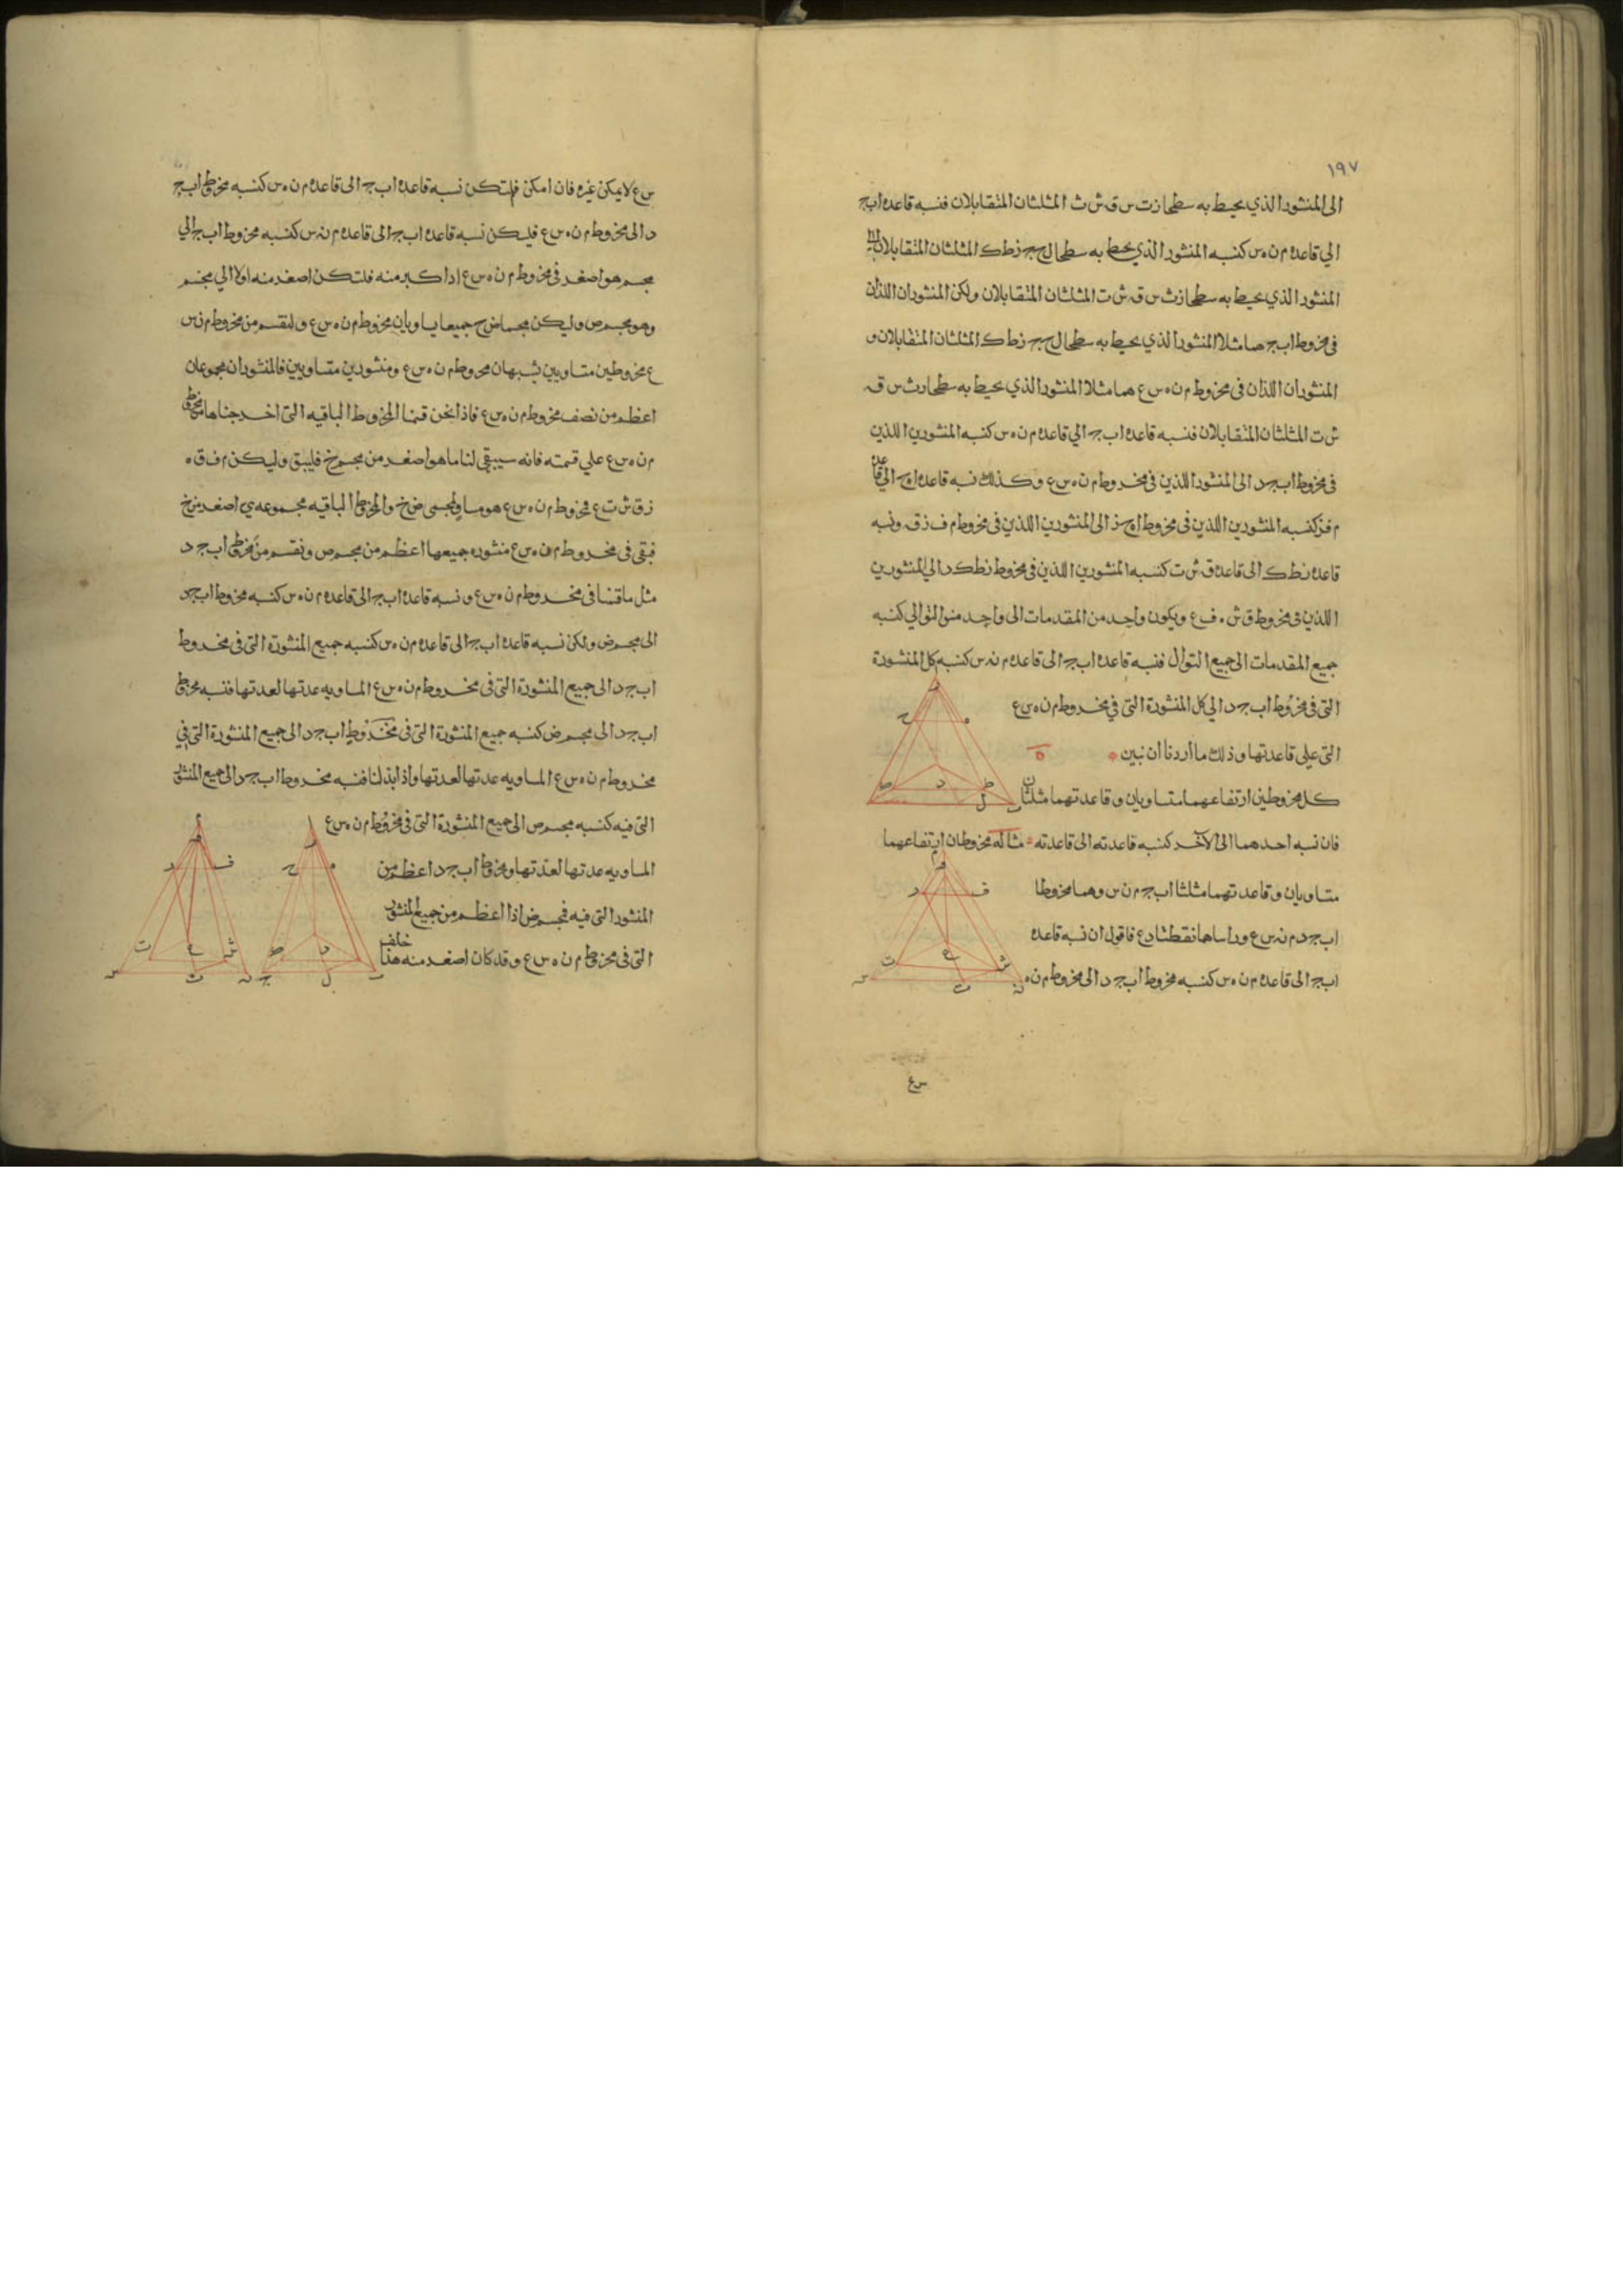 ١٩٧
الى المنشور الذي يحيط به سطحا رت س ق ش ث المثلثان المتقابلان فنسبه قاعده ابج
الي قاعده م ن ه س كنسبه المنشور الذي يحيط به سطحا ل ح ج زطك المثلثان المتقابلان الى
المنشور الذي يحيط به سطحا رث س ق ش ت المثلثان المتقابلان ولكن المنشوران اللذان
فى مخروط ابج هما مثلا المنشور الذي يحيط به سطحا ل ح ج زطك المثلثان المتقابلان و
المنشوران اللذان فى مخروط م ن ه س ع هما مثلا المنشور الذي يحيط به سطحا رث س ق
ش ت المثلثان المتقابلان فنسبه قاعده ابج الي قاعده م ن ه س كنسبه المنشورين اللذين
فى مخروط ابجد الى المنشور اللذين فى مخروط م ن ه س ع وكذلك نسبه قاعده اهح الى قاعده
م ف ز كنسبه المنشورين اللذين فى مخروط اهح ز الى المنشورين اللذين فى مخروط م ف ز ق ونسبه
قاعده زطك الى قاعده ق ش ت كنسبه المنشورين اللذين فى مخروط زطكد الي المنشورين
اللذين فى مخروط ق ش ه ف ع ويكون واحد من المقدمات الى واحد من التوالي كنسبه
جميع المقدمات الى جميع التوال فنسبه قاعده ابج الى قاعده م ن س كنسبه كل المنشورة
التى فى مخروط ابجد الي كل المنشورة التى في مخروط م ن ه س ع
التى على قاعدتها وذلك ما اردنا ان نبين ه
كل مخروطين ارتفاعهما متساويان وقاعدتهما مثلثان
فان نسبه احدهما الى الآخر كنسبه قاعدته الى قاعدته مثاله مخروطان ارتفاعهما
متساويان وقاعدتهما مثلثا ابج م ن س وهما مخروطا
ابجد م ن س ع وراساهما نقطتا د ع فاقول ان نسبه قاعده
ابج الى قاعده م ن ه س كنسبه مخروط ابجد الى مخروط م ن ه
س ع
س ع لا يمكن غيره فان امكن فلتكن نسبه قاعده ابج الى قاعده م ن ه س كنسبه مخروط ابج
د الى مخروط م ن ه س ع فليكن نسبه قاعده ابج الى قاعده م ن س كنسبه مخروط ابج الي
مجسم هو اصغر فى مخروط م ن ه س ع اذا كبر منه فلتكن اصغر منه اولا الي مجسم
وهو مجسم ص وليكن مجسما ض خ جميعا يساويان مخروط م ن ه س ع ولنقسم من مخروط م ن س
ع مخروطين متساويين يشبهان مخروط م ن ه س ع ومنشورين متساويين فالمنشوران مجموعان
اعظم من نصف مخروط م ن ه س ع فاذا نحن قسمنا المخروط الباقيه التى اخرجناها من مخروط
م ن ه س ع علي قسمته فانه سيبقى لنا ما هو اصغر من مجسم خ فليبق وليكن م ف ق ه
ز ق ش ت ع مخروط م ن ه س ع هو مساو لمجسمى ض خ والمخروط الباقيه مجموعه ي اصغر من خ
فبقى فى مخروط م ن ه س ع منشوره جميعها اعظم من مجسم ص ونقسم من مخروط ابجد
مثل ما قسمنا فى مخروط م ن ه س ع ونسبه قاعده ابج الى قاعده م ن ه س كنسبه مخروط ابجد
الى مجسم ض ولكن نسبه قاعده ابج الى قاعده م ن ه س كنسبه جميع المنشورة التى فى مخروط
ابجد الى جميع المنشورة التى فى مخروط م ن ه س ع المساويه عدتها لعدتها فنسبه مخروط
ابجد الى مجسم ض كنسبه جميع المنشورة التى فى مخروط ابجد الى جميع المنشورة التى في
مخروط م ن ه س ع المساويه عدتها لعدتها واذا بدلنا فنسبه مخروط ابجد الى جميع المنشور
التى فيه كنسبه مجسم ص الى جميع المنشورة التى فى مخروط م ن ه س ع
المساويه عدتها لعدتها ومخروط ابجد اعظم من
المنشور التى فيه فمجسم ض اذا اعظم من جميع المنشور
التى فى مخروط م ن ه س ع وقد كان اصغر منه هذا خلف